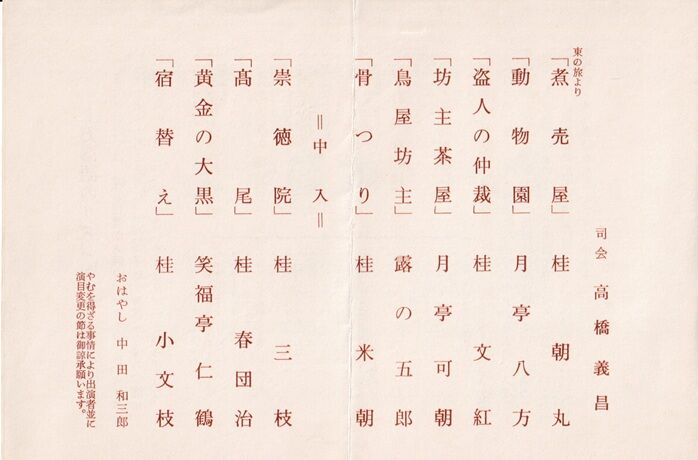 司会 高橋義昌
東の旅より
「煮売屋」 桂朝丸
「動物園」 月亭八方
「盗人の仲裁」 桂文紅
「坊主茶屋」 月亭可朝
「鳥屋坊主」 露の五郎
「骨つり」 桂米朝
＝中入＝
「崇徳院」 桂三枝
「高尾」 桂春団治
「黄金の大黒」 笑福亭仁鶴
「宿替え」 桂小文枝
おはやし 中田和三郎
やむを得ざる事情により出演者並に
演目変更の節は御諒承願います。